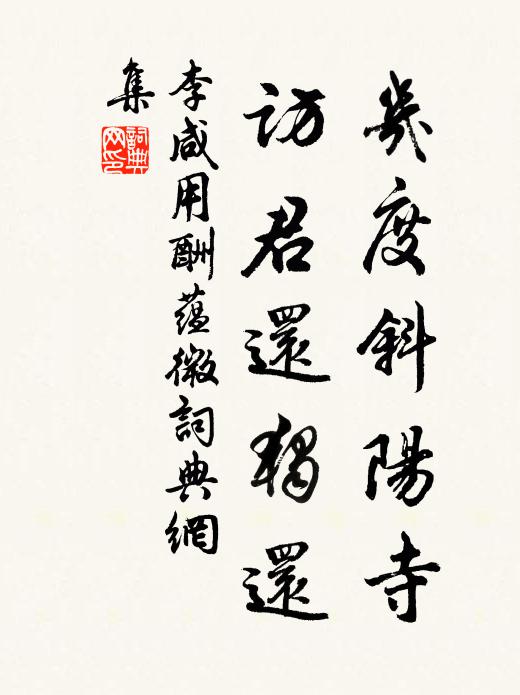 幾度斜陽寺
訪君還獨還
李咸用酬蘊微詞典網
集
詞典網印